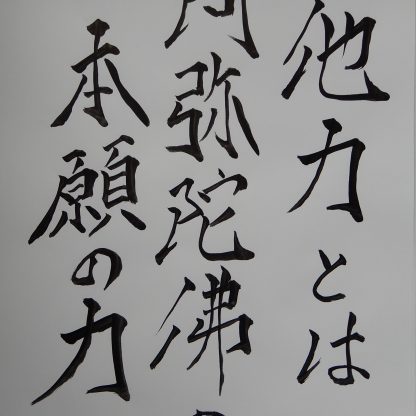 他力とは
阿弥陀佛
本願の力